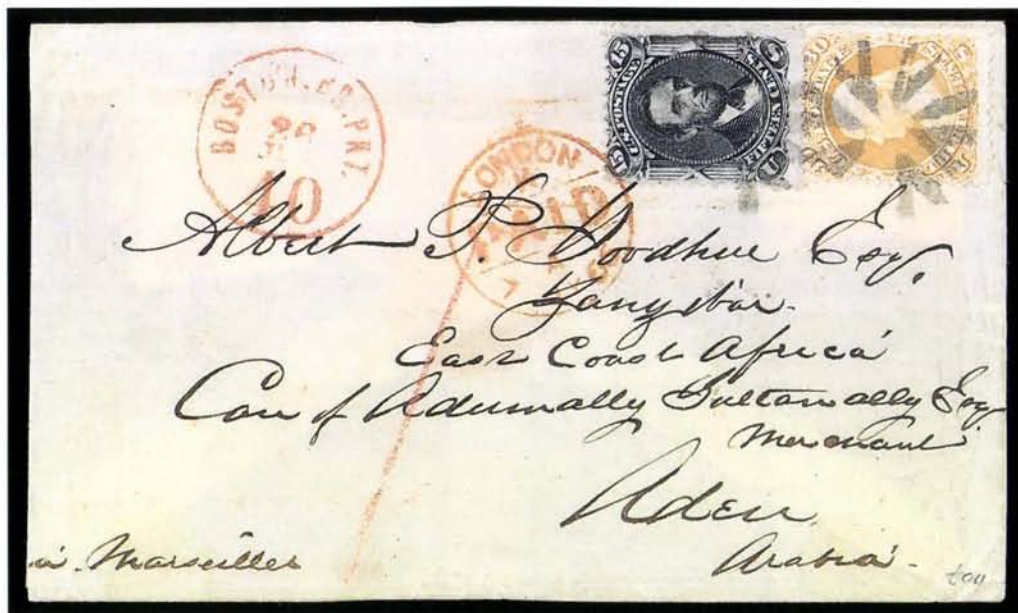 BOSTON. BR. PKT.
40
LONDON
PAID
U.S. POSTAGE
15
15
FIFTEEN CENTS
U
S
30
Albert P. Goodhue Esq.
Zanzibar.
East Coast Africa
Care of Adumally Sultanally Esq
Merchant
Aden
Arabia.
via Marseilles